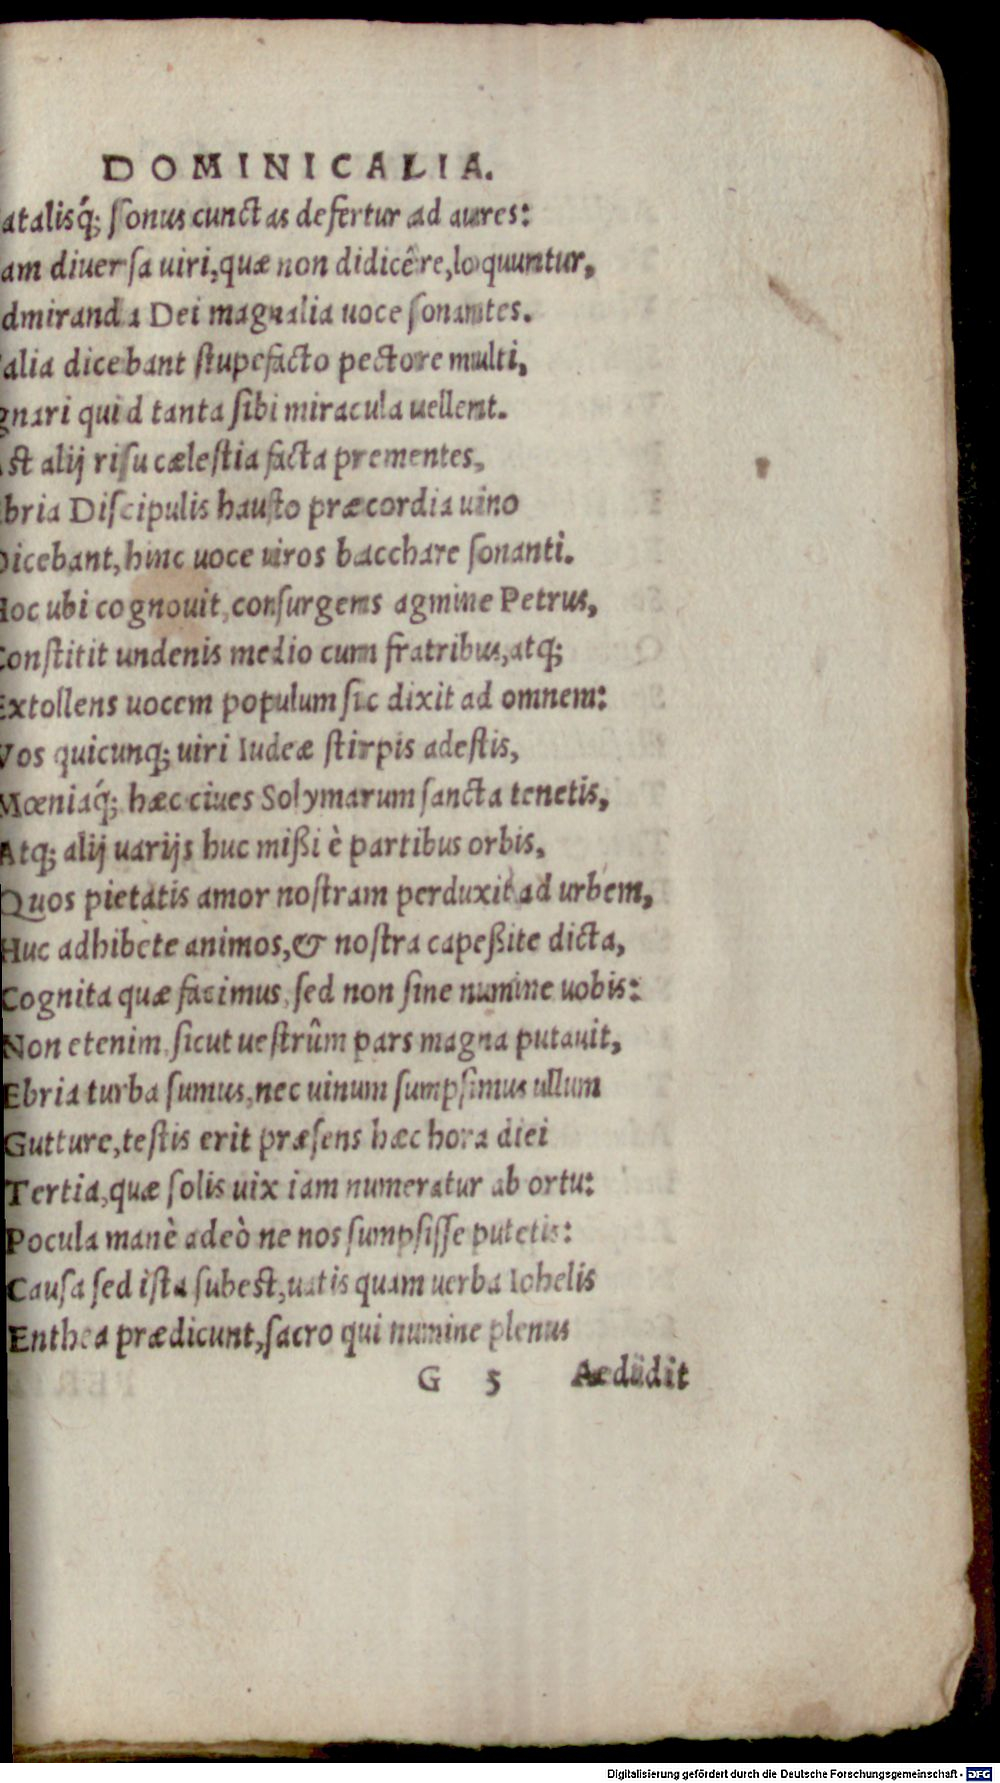 DOMINICALIA.
atalisq́; ſonus cunctas defertur ad aures:
am diuerſa uiri, quæ non didicêre, loquuntur,
dmiranda Dei magnalia uoce ſonantes.
alia dicebant ſtupefacto pectore multi,
gnari quid tanta ſibi miracula uellent.
Aſt alij riſu cæleſtia facta prementes,
bria Diſcipulis hauſto præcordia uino
Dicebant, hinc uoce uiros bacchare ſonanti.
Hoc ubi cognouit, conſurgens agmine Petrus,
Conſtitit undenis medio cum fratribus, atq;
Extollens uocem populum ſic dixit ad omnem:
Vos quicunq; uiri Iudeæ ſtirpis adeſtis,
Mœniaq́; hæc ciues Solymarum ſancta tenetis,
Atq; alij uarijs huc mißi è partibus orbis,
Quos pietatis amor noſtram perduxit ad urbem,
Huc adhibete animos, & noſtra capeßite dicta,
Cognita quæ facimus, ſed non ſine numine uobis:
Non etenim, ſicut ueſtrûm pars magna putauit,
Ebria turba ſumus, nec uinum ſumpſimus ullum
Gutture, teſtis erit præſens hæc hora diei
Tertia, quæ ſolis uix iam numeratur ab ortu:
Pocula manè adeò ne nos ſumpſiſſe putetis:
Cauſa ſed iſta ſubeſt, uatis quam uerba Iohelis
Enthea prædicunt, ſacro qui numine plenus
G 5 Aedidit
Digitalisierung gefördert durch die Deutsche Forschungsgemeinschaft - DFG